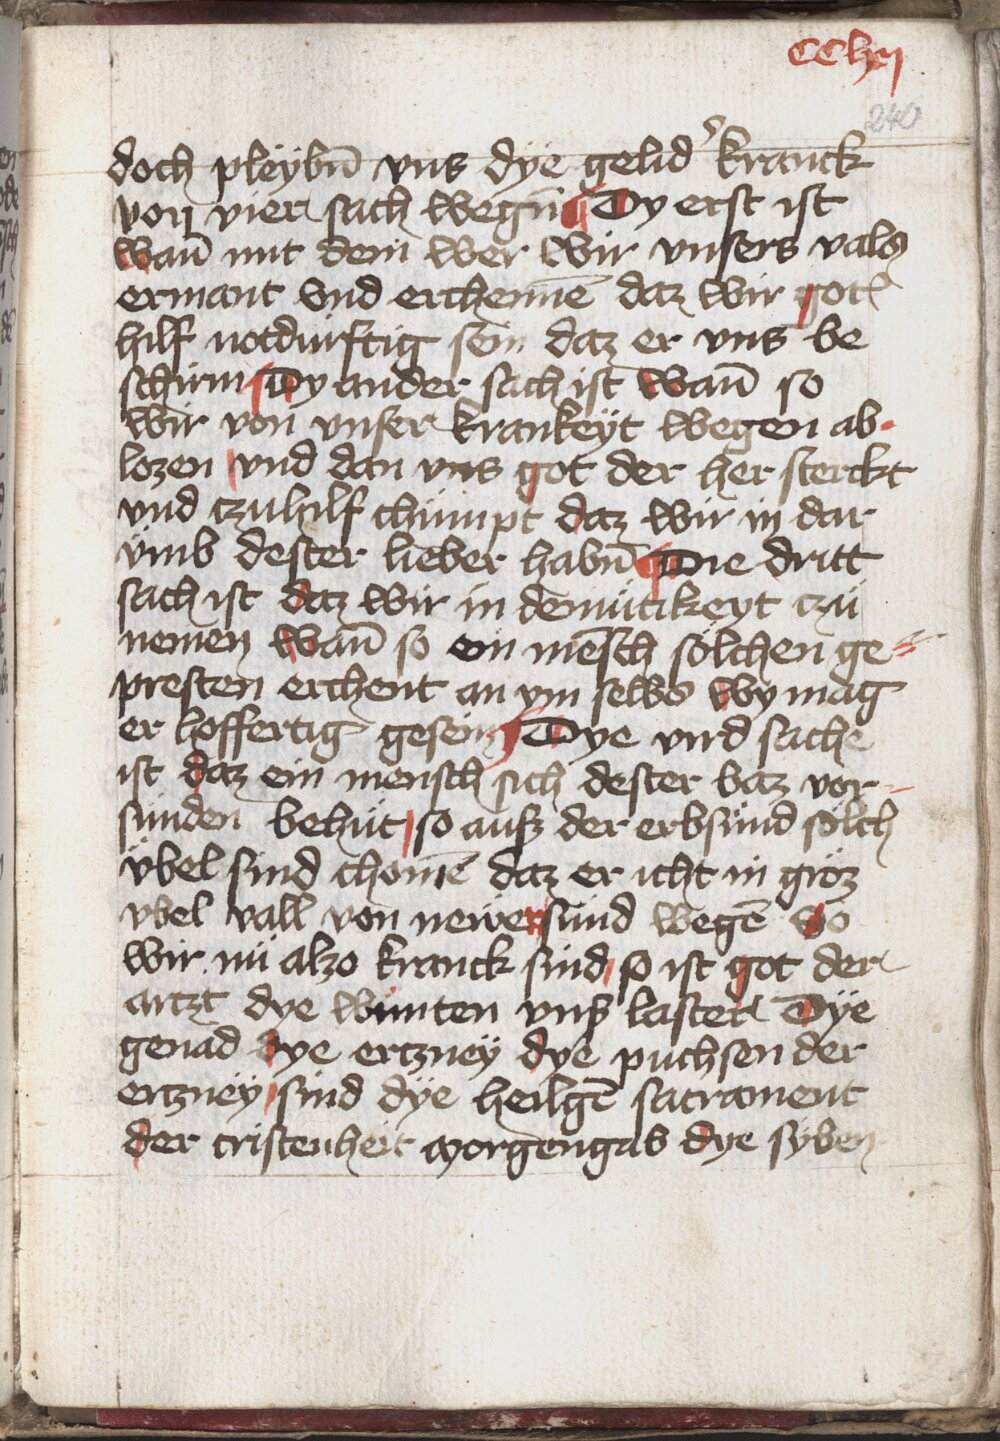 cclxij
240
doch pleybn̄ vns dÿe gelidˀ kranck
von vier sach wegn̄ Dy erst ist
wan̄ mit dem wer wir vnsers vals
ermant vnd erchenne͞ daz wir gotꝭ
hilf notdurftig sein daz er vns be
schirm Dy ander sach ist wan̄ so
wir von vnser krankeÿt wegen ab
lozen vnd dan vns got der her sterckt
vnd czuhilf chümpt daz wir in dar
vmb dester lieber habn̄ Die dritt
sach ist daz wir in demütikeyt czü
nemen wan̄ so ein me͞sch sölchen ge⸗
presten erchent an ym selbs wy mag
er hoffertig gesein Dye vird sache
ist daz ein mensch sich dester baz vor
sunden behüt so aufz der erbsünd sölch
vbel sind chome͞ daz er icht in gröz
vbel vall von newer sünd wege͞ So
wir nü alzo kranck sind so ist got der
artzt dye wunten vnsˀ laster Dÿe
genad dye ertzneÿ dye puchsen der
ertzneÿ sind dÿe heilge͞ sacrament
der cristenheit morgengab dye syben